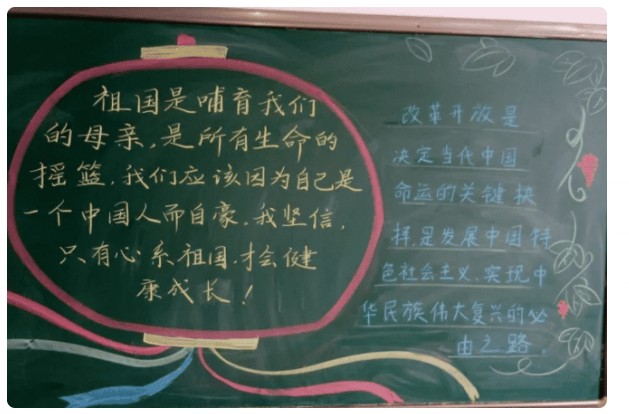 祖国是哺育我们
的母亲,是所有生命的
摇篮,我们应该因为自己是
一个中国人而自豪.我坚信,
只有心系祖国.才会健
康成长!
改革开放是
决定当代中国
命运的关键抉
择,是发展中国特
色社会主义.实现中
华民族伟大复兴的必
由之路.